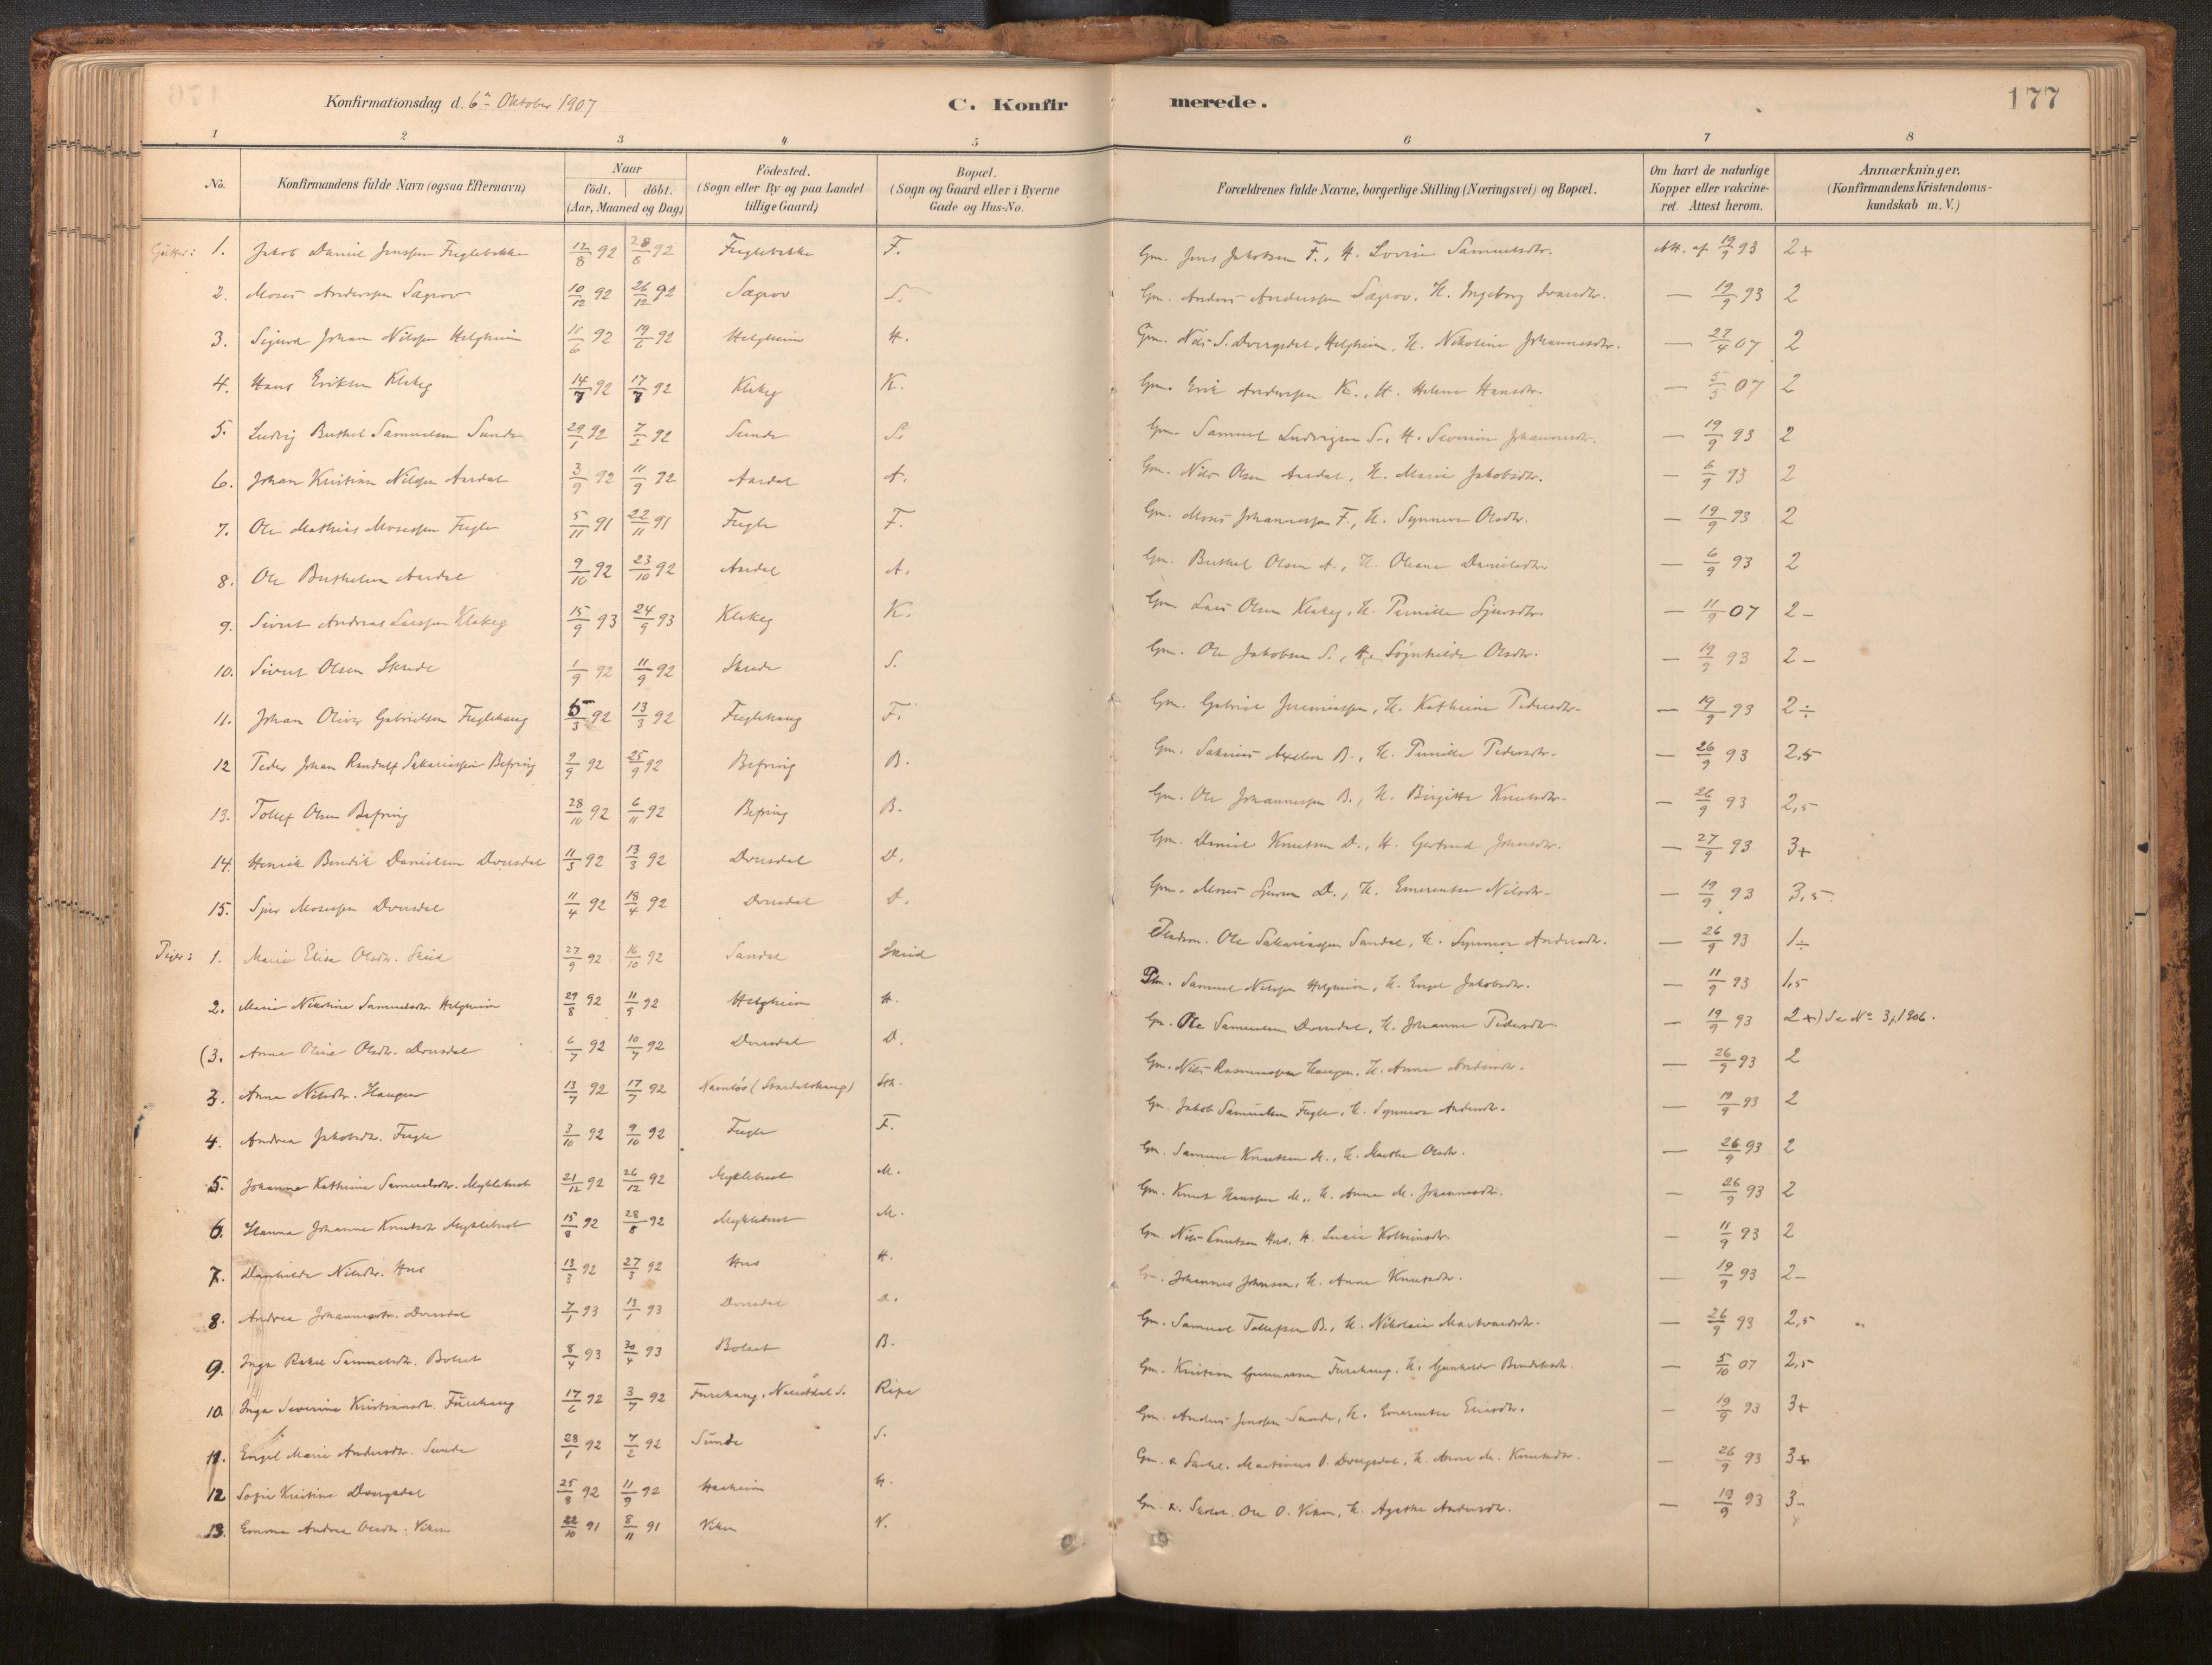 Konfirmationsdag d. 6te Oktober 1907 C. Konfirmerede. 177
1 2 3 4 5 6 7 8
No. Konfirmandens fulde Navn (ogsaa Efternavn) Naar födt. döbt. (Aar, Maaned og Dag) Födested. (Sogn eller By og paa Landet tillige Gaard) Bopæl. (Sogn og Gaard eller i Byerne Gade og Hus-No. Forældrenes fulde Navne, borgerlige Stilling (Næringsvei) og Bopæl. Om havt de naturlige Kopper eller vakcineret. Attest herom. Anmærkninger. (Konfirmandens Kristendomskundskab m. V.)
Gutter: 1. Jakob Daniel Jensen Fuglebakke 12/8 92 28/8 92 Fuglebakke F. Gm. Jens Jakobsen F., H. Lovise Samuelsdtr. Att. af 19/9 93 2+
2. Moses Anderssen Sægrov 10/12 92 26/12 92 Sægrov S. Gm. Anders Anderssen Sægrov, H. Ingeborg Ivarsdtr. — 19/9 93 2
3. Sigurd Johan Nilssen Helgheim 11/6 92 19/6 92 Helgheim H. Gm. Nils S. Dvergsdal, Helgheim, H. Nikoline Johannesdtr. — 27/4 07 2
4. Hans Eriksen Klakeg 14/7 92 17/7 92 Klakeg K. Gm. Erik Anderssen K., H. Helene Hansdtr. — 5/5 07 2
5. Ludvig Berthel Samuelsen Sunde 29/1 92 7/2 92 Sunde S. Gm. Samuel Ludvigsen S., H. Severine Johannesdtr. — 19/9 93 2
6. Johan Kristian Nilssen Aardal 3/9 92 11/9 92 Aardal A. Gm. Nils Olsen Aardal, H. Marie Jakobsdtr. — 6/9 93 2
7. Ole Mathias Mosessen Fugle 5/11 91 22/11 91 Fugle F. Gm. Moses Johannessen F., H. Synneve Olsdtr. — 19/9 93 2
8. Ole Berthelsen Aardal 9/10 92 23/10 92 Aardal A. Gm. Berthel Olsen A., H. Oleane Danielsdtr. — 6/9 93 2
9. Sivert Andreas Larssen Klakeg 15/9 93 24/9 93 Klakeg K. Gm. Lars Olsen Klakeg, H. Pernille Sjursdtr. — 11/9 07 2-
10. Sivert Olsen Skrede 1/9 92 11/9 92 Skrede S. Gm. Ole Jakobsen S., H. Søgnhilde Olsdtr. — 19/9 93 2-
11. Johan Oliver Gabrielsen Fuglehaug 5/3 92 13/3 92 Fuglehaug F. Gm. Gabriel Jeremiassen, H. Kathrine Pedersdtr. — 19/9 93 2÷
12 Peder Johan Randulf Sakariassen Befring 9/9 92 25/9 92 Befring B. Gm. Sakarias Axelsen B., H. Pernille Pedersdtr. — 26/9 93 2,5
13. Tollef Olsen Befring 28/10 92 6/11 92 Befring B. Gm. Ole Johannessen B., H. Birgitte Knutsdtr. — 26/9 93 2,5
14. Henrik Bendik Danielsen Dvergsdal 11/3 92 13/3 92 D. Gm. Daniel Knutsen D., H. Gertrud Johnsdtr. — 27/9 93 3+
15. Sjur Mosessen 11/4 92 18/4 92 D. Gm. Moses Sjursen D., H. Emerentse Nilsdtr. — 19/9 93 3,5
Piger: 1. Marie Elise Olsdtr. Skrid 27/9 92 16/10 92 Sandal Skrid Ole Sakariassen Sandal, H. Synneve Andersdtr. — 26/9 93 1÷
2. Marie Nikoline Samuelsdtr. Helgheim 29/8 92 11/9 92 Helgheim H. Samuel Nilssen Helgheim, H. Engel Jakobsdtr. — 11/9 93 1,5
(3. Anna Oline Olsdtr. 6/7 92 10/7 92 D. Gm. Ole Samuelsen, H. Johanne Pedersdtr. — 19/9 93 2+) Se No 3, 1906.
3. Anna Nilsdtr. Haugen 13/7 92 17/7 92 Namløs (Stardalshaug) Sth. Gm. Nils Rasmussen Haugen, H. Anne — 26/9 93 2
4. Andrea Jakobsdtr. Fugle 3/10 92 9/10 92 Fugle F. Gm. Jakob Samuelsen Fugle, H. Synneve Andersdtr. — 19/9 93 2
5. Johanne Kathrine Samuelsdtr. Myklebust 21/12 92 26/12 92 Myklebust M. Gm. Samuel Knutsen M., H. Marthe Olsdtr. — 26/9 93 2
6. Hanna Johanne Knutsdtr. Myklebust 15/8 92 28/8 92 Myklebust M. Gm. Knut Hanssen M., H. Anna M. Johannesdtr. — 26/9 93 2
7. Nilsdtr. Hus 13/3 92 27/3 92 Hus H. Gm. Nils Knutsen Hus, H. Lucie Kolbeinsdtr. — 11/9 93 2
8. Andrea Johannesdtr. 7/1 93 13/1 93 D. Gm. Johannes Johnsen, H. Anne Knutsdtr. — 19/9 93 2-
9. Inga Rakel Samuelsdtr. Bolset 8/4 93 30/4 93 Bolset B. Gm. Samuel Tollefsen B., H. Nikolaia — 26/9 93 2,5
10. Inga Severine Kristiansdtr. Furehaug 17/6 92 3/7 92 Furehaug, Naustdal S. Ripe Gm. Kristian Gunnarsen Furehaug, H. Gunhilde Bendiksdtr. — 5/10 07 2,5
11. Engel Marie Andersdtr. Sunde 28/1 92 7/2 92 Sunde S. Gm. Anders Jenssen Sunde, H. Emerentse Eliasdtr. — 19/9 93 3+
12 Sofie Kristine Dvergsdal 25/8 92 11/9 92 H. Gm. & Martinus O. Dvergsdal, H. Anne M. Knutsdtr. — 26/9 93 3+
13. Emma Andrea Olsdtr. Viken 22/10 91 8/11 91 Viken V. Gm. & Ole O. Viken, H. Agathe Andersdtr. — 19/9 93 3-